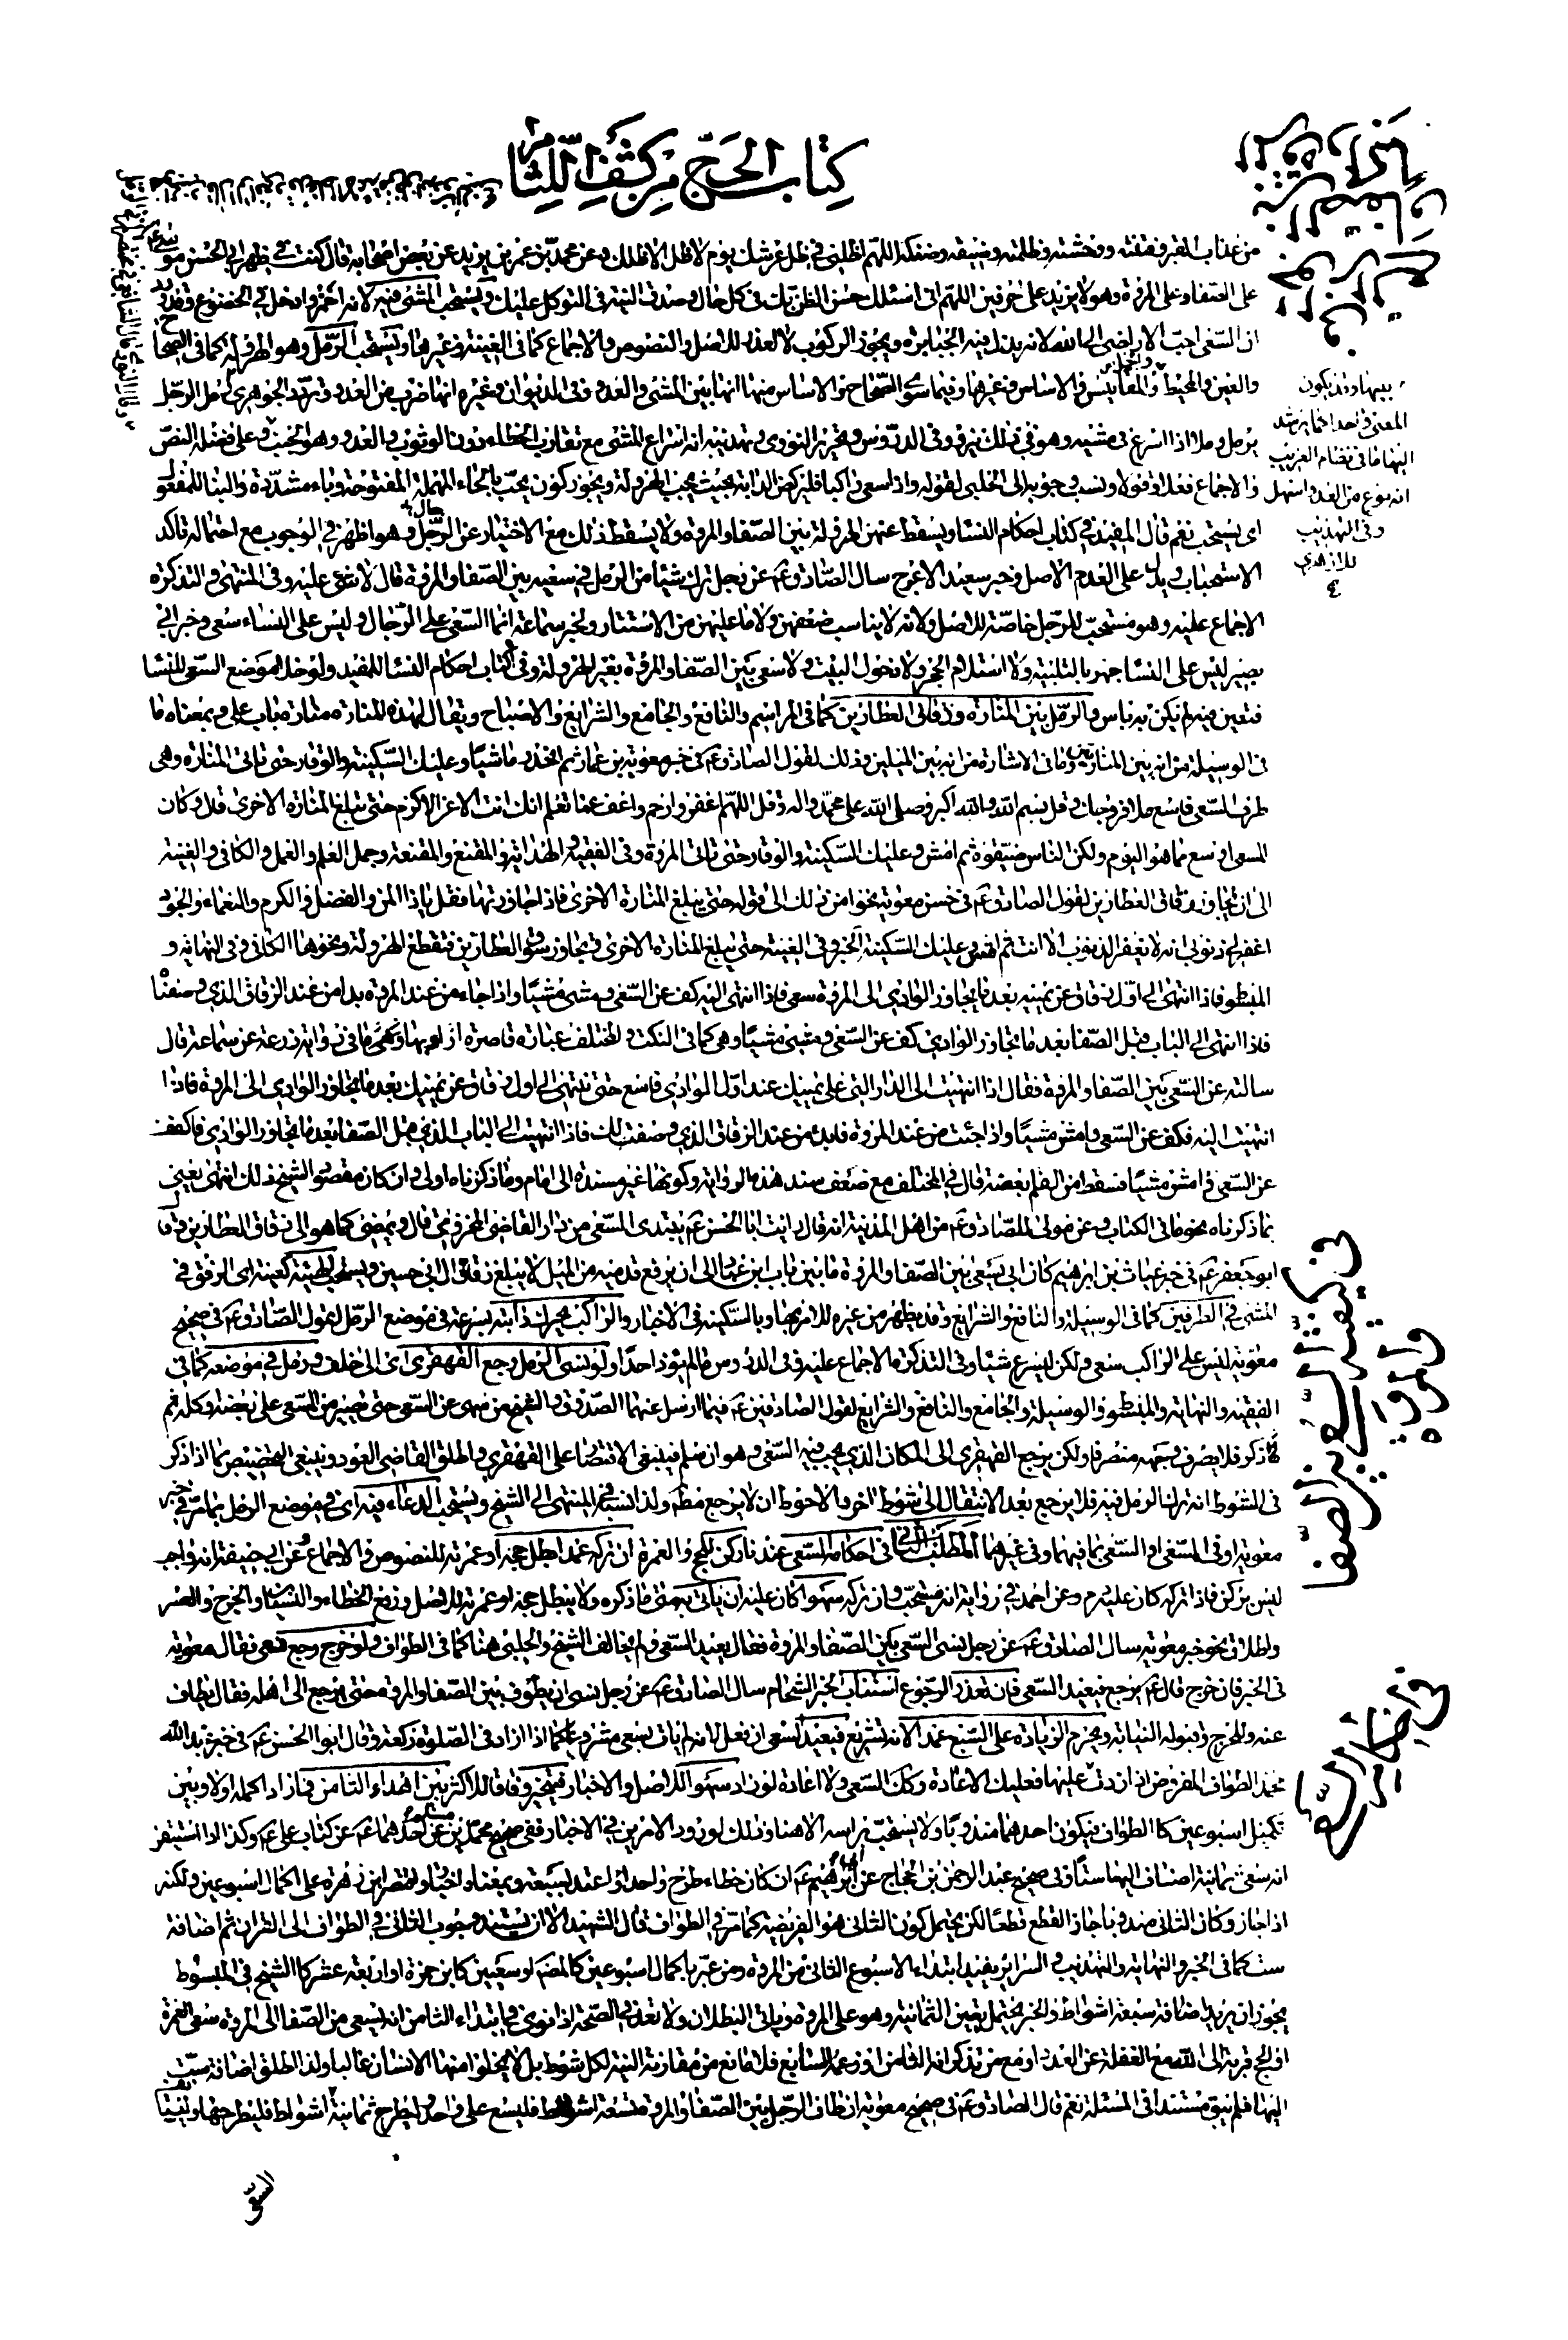 كتاب الحج من كشف اللثام
من عذاب القبر وفتنته ووحشته وظلمته وضيقه وضنكه اللهم اظلني في ظل عرشك يوم لا ظل الا ظلك وعن محمد بن عمر بن يزيد عن بعض اصحابه قال كنت في ظهر ابي الحسن موسى
على الصفا وعلى المروة وهو لا يزيد على حرفين اللهم اني اسئلك حسن الظن بك في كل حال وصدق النية في التوكل عليك ويستحب المشي فيه لانه احمز وادخل في الخضوع وقد ورد
ان السعي احب الاراضي الى الله لانه يذل فيه الجبابرة ويجوز الركوب لا لعذر للاصل والنصوص والاجماع كما في الغنية وغيرها ويستحب الرمل وهو الهرولة كما في الصحاح
والعين والمحيط والمقاييس والاساس وغيرها وفيما سوى الصحاح والاساس منها انها بين المشي والعدو وفي الديوان وغيره انها ضرب من العدو وتردد الجوهري رمل الرجل
يرمل رملا اذا اسرع في مشيه وهو في ذلك ينزو وفي الدروس وتحرير النووي وتهذيبه انه اسراع المشي مع تقارب الخطاء دون الوثوب والعدو وهو الخبب وعلى فضله النص
والاجماع فعلا وقولا ونسب وجوبه الى الحلبي لقوله واذا سعى راكبا فليركض الدابة بحيث يجب الهرولة ويجوز كون يحب بالحاء المهملة المفتوحة وباء مشددة والبنا للمفعول
اي يستحب نعم قال المفيد في كتاب احكام النسا ويسقط عنهن الهرولة بين الصفا والمروة ولا يسقط ذلك مع الاختيار عن الرجال وهو اظهر في الوجوب مع احتماله تاكد
الاستحباب ويدل على العدم الاصل وخبر سعيد الاعرج سال الصادق ع عن رجل ترك شيئا من الرمل في سعيه بين الصفا والمروة قال لا شئ عليه وفي المنتهى والتذكرة
الاجماع عليه وهو مستحب للرجل خاصة للاصل ولانه لا يناسب ضعفهن ولا ما عليهن من الاستتار ولخبر سماعة انما السعي على الرجال وليس على النساء سعى وخبر ابي
بصير ليس على النسا جهر بالتلبية ولا استلام الحجر ولا دخول البيت ولا سعى بين الصفا والمروة يعني الهرولة وفي كتاب احكام النسا للمفيد ولو خلا موضع السعي للنسا
فسعين فيه لم يكن به باس والرمل بين المنارة وزقاق العطارين كما في المراسم والنافع والجامع والشرايع والاصباح ويقال لهذه المنارة منارة باب علي وبمعناه ما
في الوسيلة من انه بين المنارتين وما في الاشارة من انه بين الميلين وذلك لقول الصادق ع في خبر معوية بن عمار ثم انحدر ماشيا وعليك السكينة والوقار حتى تاتي المنارة وهى
طرف المسعى فاسع ملا فروجك وقل بسم الله والله اكبر وصلى الله على محمد واله وقل اللهم اغفر وارحم واعف عما تعلم انك انت الاعز الاكرم حتى تبلغ المنارة الاخرى قال وكان
المسعى اوسع مما هو اليوم ولكن الناس ضيقوه ثم امش وعليك السكينة والوقار حتى تاتي المروة وفي الفقيه والهداية والمقنع والمقنعة وجمل العلم والعمل والكافي والغنية
الى ان تجاوز زقاق العطارين لقول الصادق ع في حسن معوية نحوا من ذلك الى قوله حتى يبلغ المنارة الاخرى فاذا جاوزتها فقل يا ذا المن والفضل والكرم والنعماء والجود
اغفر لي ذنوبي انه لا يغفر الذنوب الا انت ثم امش وعليك السكينة الخبر وفي الغنية حتى تبلغ المنارة الاخرى وتجاوز سوق العطارين فتقطع الهرولة ونحوها الكافي وفي النهاية و
المبسوط فاذا انتهى الى اول زقاق عن يمينه بعد ما يجاوز الوادي الى المروة سعى فاذا انتهى اليه كف عن السعي ومشى مشيا واذا جاء من عند المروة بدا من عند الزقاق الذي وصفنا
فاذا انتهى الى الباب قبل الصفا بعد ما تجاوز الوادي كف عن السعي ومشى مشيا وهي كما في النكت والمختلف عبارة قاصرة اراد بها وهي ما في رواية زرعة عن سماعة قال
سالته عن السعي بين الصفا والمروة فقال اذا انتهيت الى الدار التي على يمينك عند اول الوادي فاسع حتى تنتهي الى اول زقاق عن يمينك بعد ما تجاوز الوادي الى المروة فاذا
انتهيت اليه فكف عن السعي وامش مشيا واذا جئت من عند المروة فابدء من عند الزقاق الذي وصفت لك فاذا انتهيت الى الباب الذي قبل الصفا بعد ما تجاوز الوادي فاكفف
عن السعي وامش مشيا فسقط من القلم بعضه قال في المختلف مع ضعف سند هذه الرواية وكونها غير مسندة الى امام وما ذكرناه اولى وان كان مقصود الشيخ ذلك انتهى يعني
بما ذكرناه نحو ما في الكتاب وعن مولى للصادق ع من اهل المدينة انه قال رايت ابا الحسن ع يبتدى السعي من دار القاضي المخزومي قال ويمضي كما هو الى زقاق العطارين وقال
ابو جعفر ع في خبر غياث بن ابرهيم كان ابي يسعى بين الصفا والمروة ما بين باب ابن عباد الى ان يرفع قدميه من الميل لا يبلغ زقاق ال ابي حسين ويستحب الهينة كعينه اى الرفق في
المشي في الطرفين كما في الوسيلة والنافع والشرايع وقد يظهر من غيره للامر بها وبالسكينة في الاخبار والراكب يحرك دابته بسرعة في موضع الرمل لقول الصادق ع في صحيح
معوية ليس على الراكب سعى ولكن ليسرع شيئا وفي التذكرة الاجماع عليه وفي الدروس ما لم يؤذ احدا ولو نسى الرمل رجع القهقرى اى الى خلف ورمل في موضعه كما في
الفقيه والنهاية والمبسوط والوسيلة والجامع والنافع والشرايع لقول الصادقين ع فيما ارسل عنهما الصدوق والشيخ من سهى عن السعي حتى يصير من السعي على بعضه وكله ثم
ذكر فلا يصرف وجهه منصرفا ولكن يرجع القهقرى الى المكان الذي يجب فيه السعي وهو ان سلم فينبغي الاقتصار على القهقرى واطلق القاضي العود وينبغي التخصيص بما اذا ذكر
في الشوط انه ترك الرمل فيه فلا يرجع بعد الانتقال الى شوط اخر والاحوط ان لا يرجع مطلقا ولذا نسبه في المنتهى الى الشيخ ويستحب الدعاء فيه اى في موضع الرمل بما مر في خبر
معوية او في المسعى او السعي بما فيهما وفي غيرهما المطلب الثاني في احكامه السعي عندنا ركن للحج والعمرة ان تركه عمدا بطل حجه او عمرته للنصوص والاجماع وعن ابي حنيفة انه واجب
ليس بركن فاذا تركه كان عليه دم وعن احمد في رواية انه مستحب فان تركه سهوا كان عليه ان ياتي به متى ما ذكره ولا يبطل حجه او عمرته للاصل ورفع الخطاء والنسيان والحرج والعسر
واطلاق نحو خبر معوية سال الصادق ع عن رجل نسى السعي بين الصفا والمروة فقال يعيد السعي ولم يخالف الشيخ والحلبي هنا كما في الطواف ولو خرج رجع وسعى فقال معوية
في الخبر فان خرج قال ع يرجع فيعيد السعي فان تعذر الرجوع استناب لخبر الشحام سال الصادق ع عن رجل نسى ان يطوف بين الصفا والمروة حتى يرجع الى اهله فقال يطاف
عنه وللحرج وقبوله النيابة ويحرم الزيادة على السبع عمدا لانه تشريع فيعيد السعي ان فعل لانه لم يات بسعي مشروع كما اذا زاد في الصلوة ركعة وقال ابو الحسن ع في خبر عبد الله بن
محمد الطواف المفروض اذا زدت عليها فعليك الاعادة وكذلك السعي ولا اعادة لو زاد سهوا للاصل والاخبار فيتخير وفاقا للاكثر بين اهداء الثامن فما زاد اكمله اولا وبين
تكميل اسبوعين كالطواف فيكون احدهما مندوبا ولا يستحب براسه الا هنا وذلك لورود الامرين في الاخبار ففي صحيح محمد بن مسلم عن احدهما ع عن كتاب علي ع وكذا اذا استيقن
انه سعى ثمانية اضاف اليها ستا وفي صحيح عبد الرحمن بن الحجاج عن ابي ابرهيم ع ان كان خطاء طرح واحدا واعتد بسبعة وبمعناه اخبار واقتصر ابن زهرة على اكمال اسبوعين ولكنه
اذا جاز وكان الثاني مندوبا جاز القطع قطعا لكن يحتمل كون الثاني هو الفريضة كما مر في الطواف قال الشهيد الا ان يستند وجوب الثاني في الطواف الى القران ثم اضافة
ست كما في الخبر والنهاية والتهذيب والسرائر يفيد ابتداء الاسبوع الثاني من المروة ومن عبر باكمال اسبوعين كالمصنف او سعيين كابن حمزة او اربعة عشر كالشيخ في المبسوط
يجوز ان يريد اضافة سبعة اشواط والخبر يحتمل يقين الثمانية وهو على المروة وياتي البطلان ولا بعد في الصحة اذا نوى في ابتداء الثامن انه يسعى من الصفا الى المروة سعى العمرة
او الحج قربة الى الله مع الغفلة عن العدد او مع من تذكر انه الثامن او زعمه السابع فلا مانع من مقارنة النية لكل شوط بل لا يخلو منها الانسان غالبا ولذا اطلق اضافة ست
اليها فلم يبق مستند في المسئلة نعم قال الصادق ع في صحيح معوية ان طاف الرجل بين الصفا والمروة تسعة اشواط فليسع على واحد وليطرح ثمانية اشواط فليطرحها وليستأنف
السعي
بينها وقد يكون
المعنى واحدا كما يرشد
اليها ما في نظام الغريب
انه نوع من العدو اسهل
وفي التهذيب
للازهري
في كيفية السعي بين الصفا
والمروة
في احكام السعي